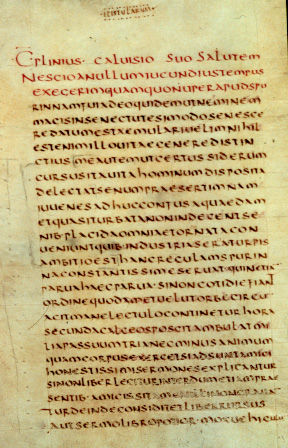 ·EPISTULARUM·
C·PLINIUS· CALUISIO SUO SALUTEM
NESCIOANULLUMIUCUNDIUSTEMPUS
EXEGERIMQUAMQUONUPERAPUDSPU
RINNAMFUIADEOQUIDEMUTNEMINEM
MAGISINSENECTUTESIMODOSENESCE
REDATUMESTAEMULARIUELIMNIHIL
ESTENIMILLOUITAEGENEREDISTIN
CTIUSMEAUTEMUTCERTUSSIDERUM
CURSUSITAUITAHOMINUMDISPOSITA
DELECTATSENUMPRAESERTIMNAM
IUUENESADHUCCONFUSAQUAEDAM
ETQUASITURBATANONINDECENTSE
NIB·PLACIDAOMNIAETORNATACON
UENIUNTQUIB·INDUSTRIASERATURPIS
AMBITIOESTHANCREGULAMSPURIN
NACONSTANTISSIMESERUATQUINETIA
PARUAHAECPARUASINONCOTIDIEFIANT
ORDINEQUODAMETUELUTORBECIRCU
AGITMANELECTULOCONTINETURHORA
SECUNDACALCEOSPOSCITAMBULATMI
LIAPASSUUMTRIANECMINUSANIMUM
QUAMCORPUSEXERCETSIADSUNTAMICI
HONESTISSIMISERMONESEXPLICANTUR
SINONLIBERLEGITURINTERDUMETIAMPRAE
SENTIB·AMICISSITAMENILLINONGRAUAN
TURDEINDECONSIDITETLIBERRURSUS
AUTSERMOLIBROPOTIOR·MOXUEHICULU